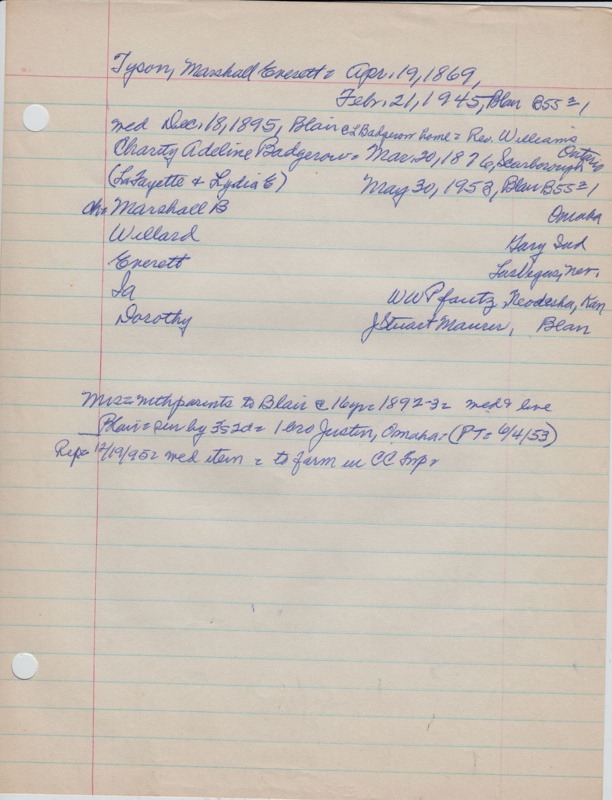 Tyson, Marshall Everett = Apr. 19, 1869,
Febr. 21, 1945, Blair B55=1,
med Dec. 18, 1895, Blair @ L Badgerow home = Rev. Williams
Charity Adeline Badgerow = Mar. 20, 1876, Scarborough Ontario
(LaFayette & Lydia E) May 30, 1953, Blair B55=1
ch= Marshall B Omaha
Willard Gary Ind
Everett Las Vegas, Nev.
Ia WW Pfautz Neodesha, Kan
Dorothy J Stuart Maurer, Blair
Mrs= with parents to Blair @ 16yr= 1892-3= med & live
Blair= sur by 3s 2d= 1 bro Justin, Omaha= (PT= 6/4/53)
Rep= 12/19/95= med item = to farm in CC Twp.